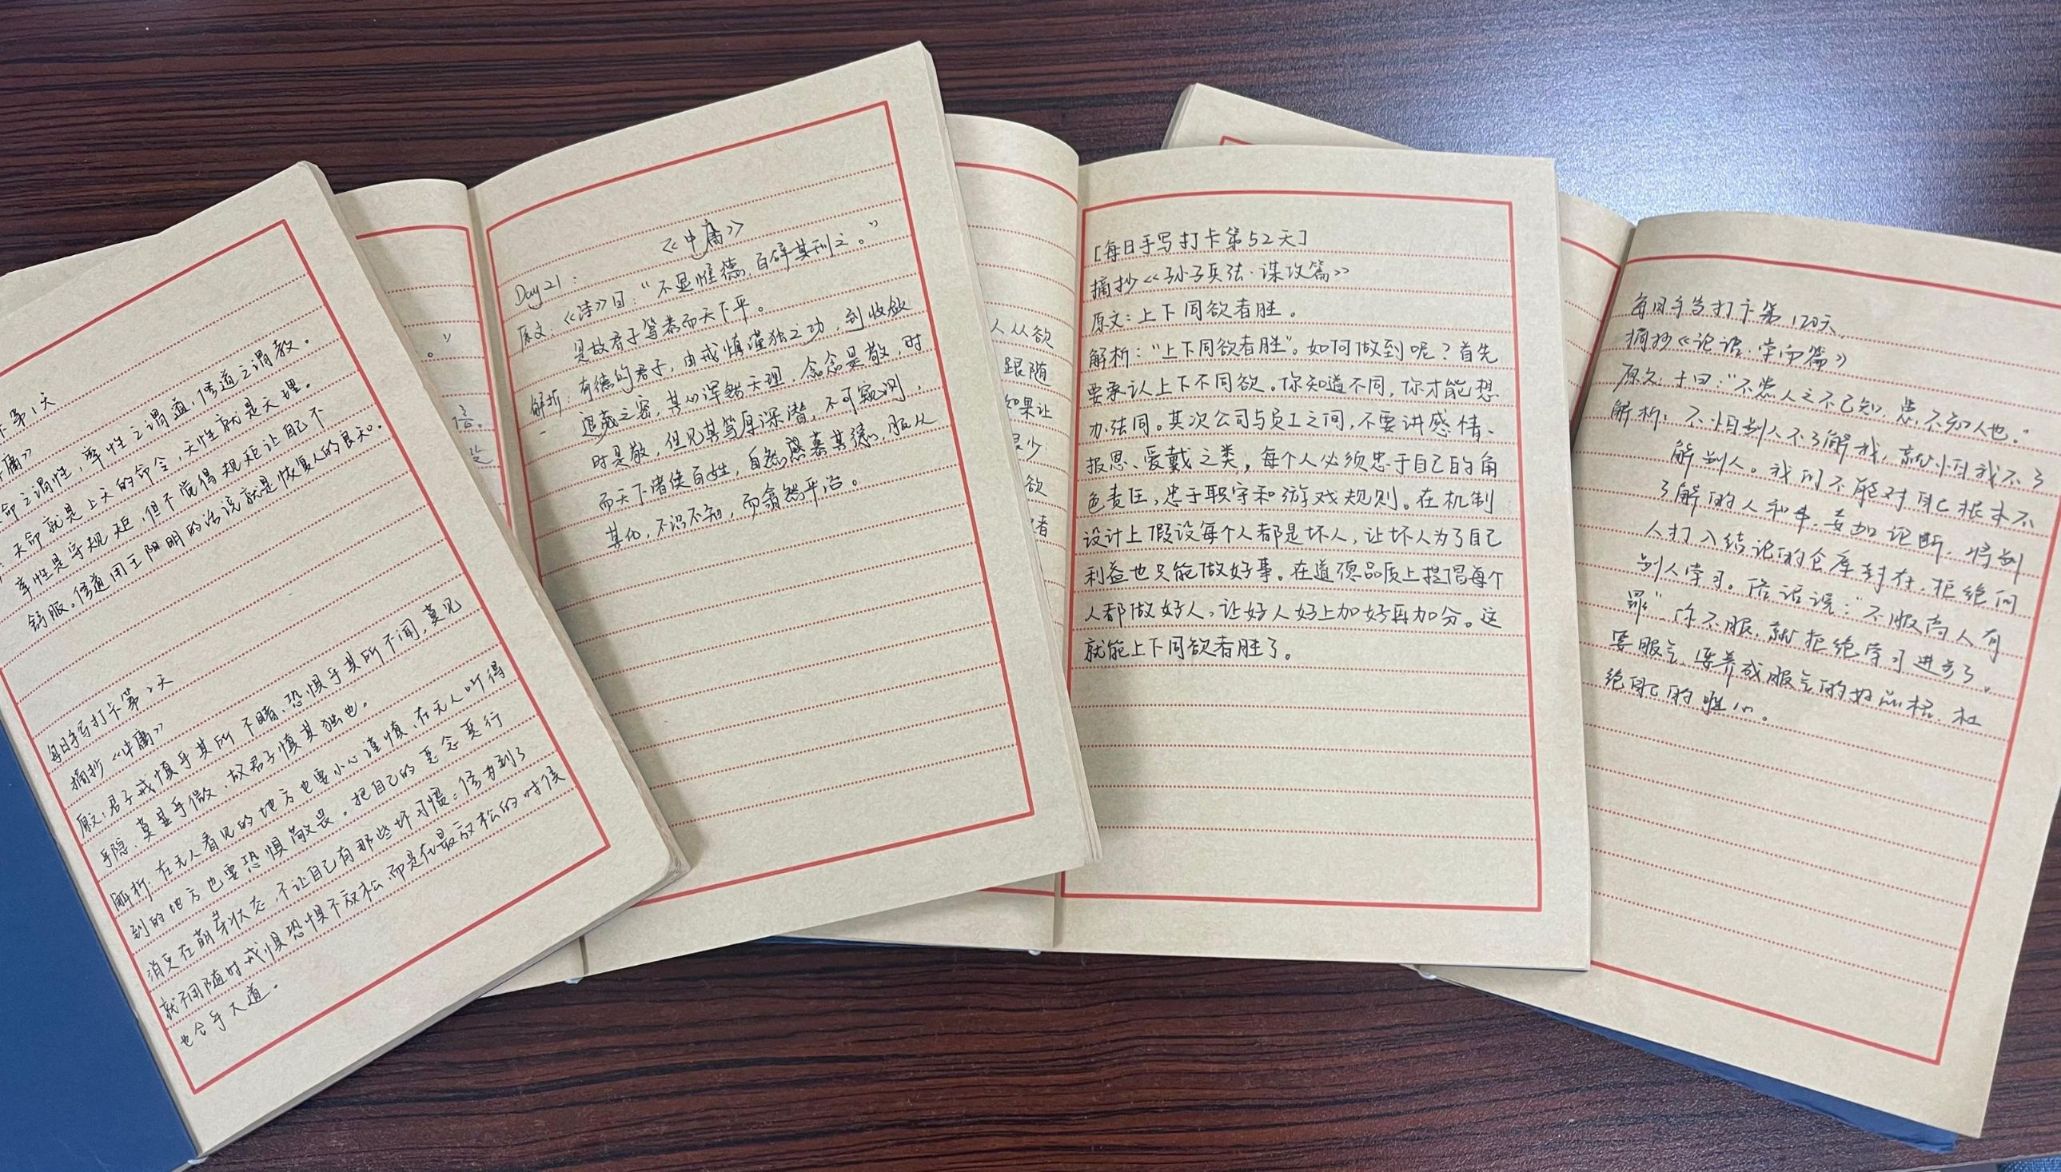 卡第1天
庸》
命之谓性，率性之谓道，修道之谓教。
天命就是上天的命令，天性就是天理。
率性是守规矩，但不觉得规矩让自己不
舒服。修道用王阳明的话说就是恢复人的良知。
每日手写打卡第2天
摘抄《中庸》
原文：君子戒慎乎其所不睹，恐惧乎其所不闻，莫见
乎隐，莫显乎微，故君子慎其独也。
解析：在无人看见的地方也要小心谨慎，在无人听得
到的地方也要恐惧敬畏。把自己的恶念恶行
消灭在萌芽状态，不让自己有那些坏习惯。修为到了
就不用随时戒慎恐惧不放松，而是在最放松的时候
也合乎大道。
。”
《中庸》
Day21：
原文：《诗》曰：“不显惟德，百辟其刑之。”
是故君子笃恭而天下平。
解析：有德的君子，由戒慎谨独之功，到收敛
退藏之密，其心浑然天理，念念是敬，时
时是敬，但见其笃厚深潜，不可窥测，
而天下诸侯百姓，自然感慕其德，服从
其化，不识不知，而翕然平治。
人从欲
跟随
如果让
很少
欲
者
[每日手写打卡第52天]
摘抄《孙子兵法·谋攻篇》
原文：上下同欲者胜。
解析：“上下同欲者胜”。如何做到呢？首先
要承认上下不同欲。你知道不同，你才能想
办法同。其次公司与员工之间，不要讲感情、
报恩、爱戴之类，每个人必须忠于自己的角
色责任，忠于职守和游戏规则。在机制
设计上假设每个人都是坏人，让坏人为了自己
利益也只能做好事。在道德品质上提倡每个
人都做好人，让好人好上加好再加分。这
就能上下同欲者胜了。
每日手写打卡第120天
摘抄《论语·学而篇》
原文：子曰：“不患人之不己知，患不知人也。”
解析：不怕别人不了解我，就怕我不了
解别人。我们不能对自己根本不
了解的人和事，妄加论断，将别
人打入结论的仓库封存，拒绝向
别人学习。俗话说：“不服高人有
罪”你不服，就拒绝学习进步了。
要服气，培养成服气的好品格，杜
绝自己的雄心。